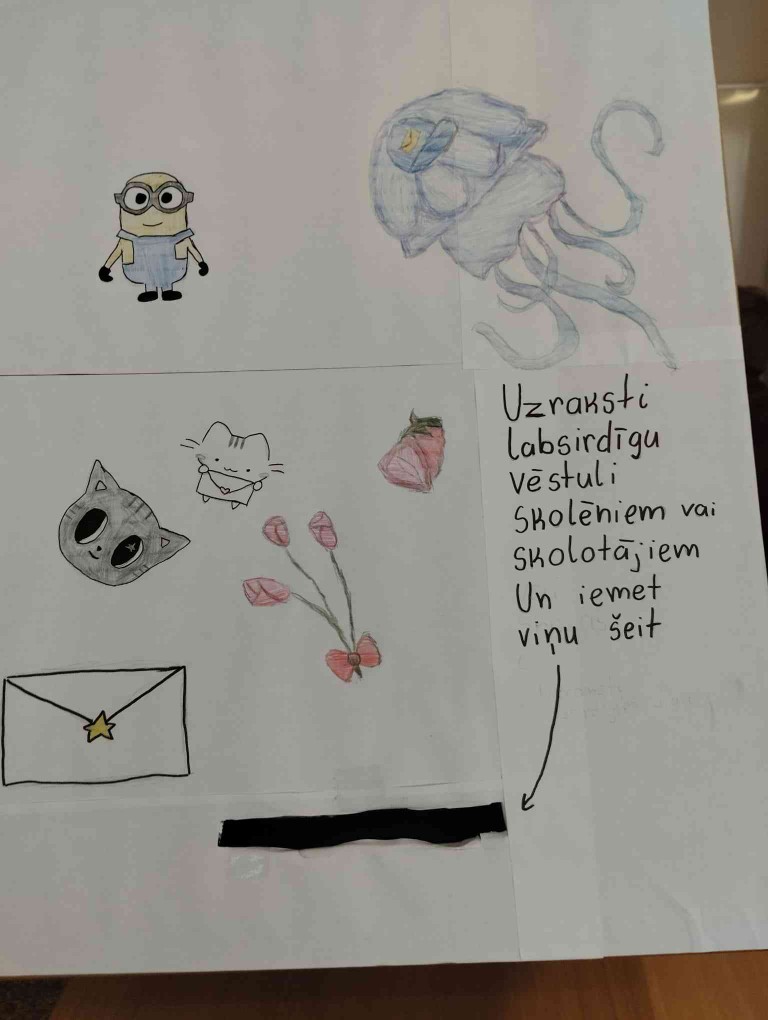 Uzraksti
labsirdīgu
vēstuli
skolēniem vai
skolotājiem
Un iemet
viņu šeit